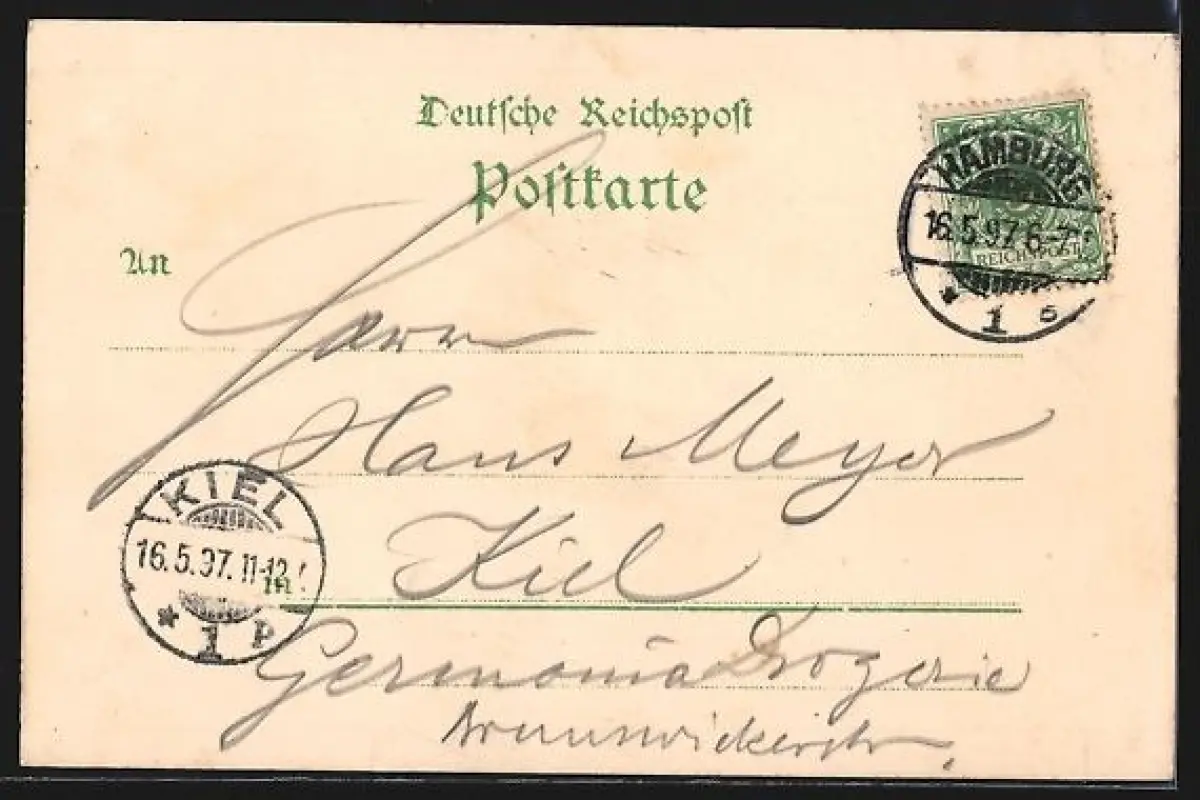 Deutsche Reichspost
Postkarte
HAMBURG
16.5.97. 6-7
1 s
REICHSPOST
An
Herrn
Hans Meyer
KIEL
16.5.97. 11-12
1 P
in
Kiel
Germania Drogerie
Brunswickerstr.